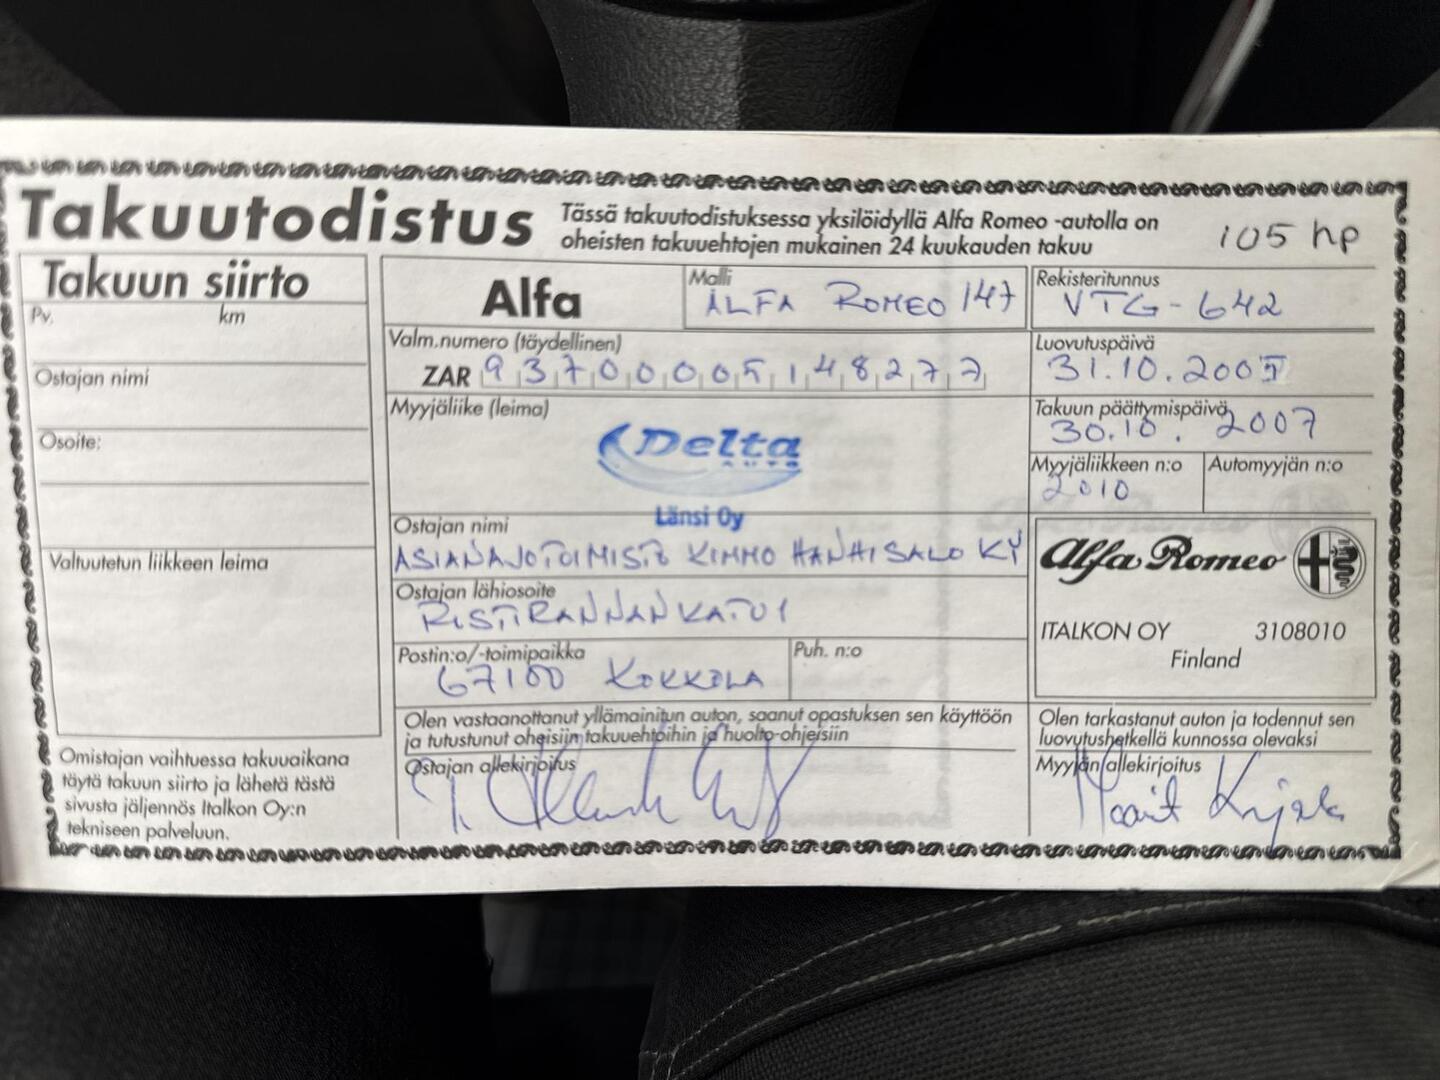 Takuutodistus
Tässä takuutodistuksessa yksilöidyllä Alfa Romeo -autolla on
oheisten takuuehtojen mukainen 24 kuukauden takuu
105 hp
Takuun siirto
Pv. km
Ostajan nimi
Osoite:
Valtuutetun liikkeen leima
Omistajan vaihtuessa takuuaikana
täytä takuun siirto ja lähetä tästä
sivusta jäljennös Italkon Oy:n
tekniseen palveluun.
Alfa
Malli
ALFA ROMEO 147
Rekisteritunnus
VTG-642
Valm.numero (täydellinen)
ZAR 93700005148277
Luovutuspäivä
31.10.2005
Myyjäliike (leima)
Delta
AUTO
Länsi Oy
Takuun päättymispäivä
30.10. 2007
Myyjäliikkeen n:o Automyyjän n:o
2010
Ostajan nimi
ASIANAJOTOIMISTO KIMMO HANHISALO KY
Ostajan lähiosoite
RISTIRANNANKATU 1
Postin:o/-toimipaikka Puh. n:o
67100 KOKKOLA
Alfa Romeo
ITALKON OY 3108010
Finland
Olen vastaanottanut yllämainitun auton, saanut opastuksen sen käyttöön
ja tutustunut oheisiin takuuehtoihin ja huolto-ohjeisiin
Ostajan allekirjoitus
Olen tarkastanut auton ja todennut sen
luovutushetkellä kunnossa olevaksi
Myyjän allekirjoitus
Maarit